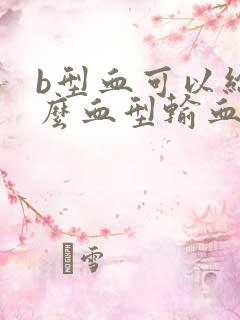 b型血可以给
麼血型輸血
雪